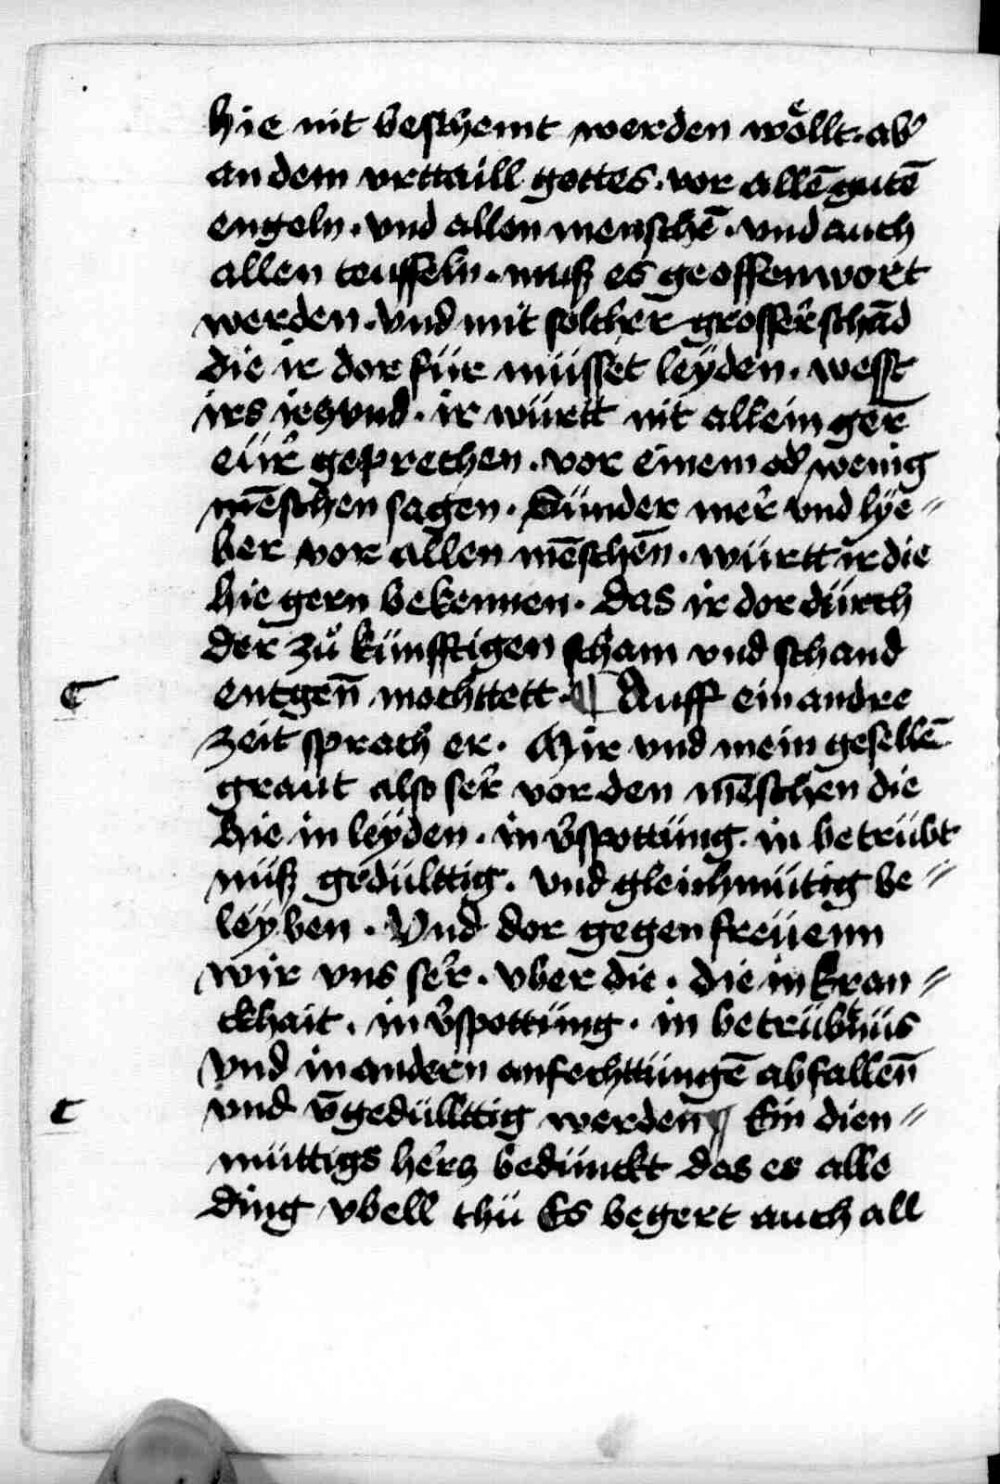 hie nit beschemt werden woͤllt · ab'
an dem vrttaill gottes · vor allē gutē
engeln · vnd allen menschē · vnd auch
allen teuffeln · muß es geoffenwort
werden · vnd mit solcher grosser schād
die ir dor für müsset leyden · wesst
irs ieczund · ir württ nit allein gern̄
eür geprechen · vor einem od' wenig
mēschen sagen · Sünder mer vnd lye〃
ber vor allen mēschen̄ · württ ir die
hie gern bekennen · das ir dor dürch
der zuͦ künfftigen scham vnd schand
C entgen̄ mochttett · ¶ Auff ein andre
zeit sprach er · Mir vnd mein gesellē
graut also ser vor den mēschen die
hie in leyden · in v̄spottüng · in betrübt
nüß gedülttig · vnd gleichmütig be〃
leyben · Vnd dor gegen freüenn
wir vns ser · vber die · die in kran〃
ckhait · in v̄spottüng · in betrübtnüs
vnd in andern anfechttüngē abfallen̄
C vnd v̄gedüllttig werden ¶ Ein dien〃
müttigs hercz bedünckt das es alle
ding vbell thü Es begert auch all